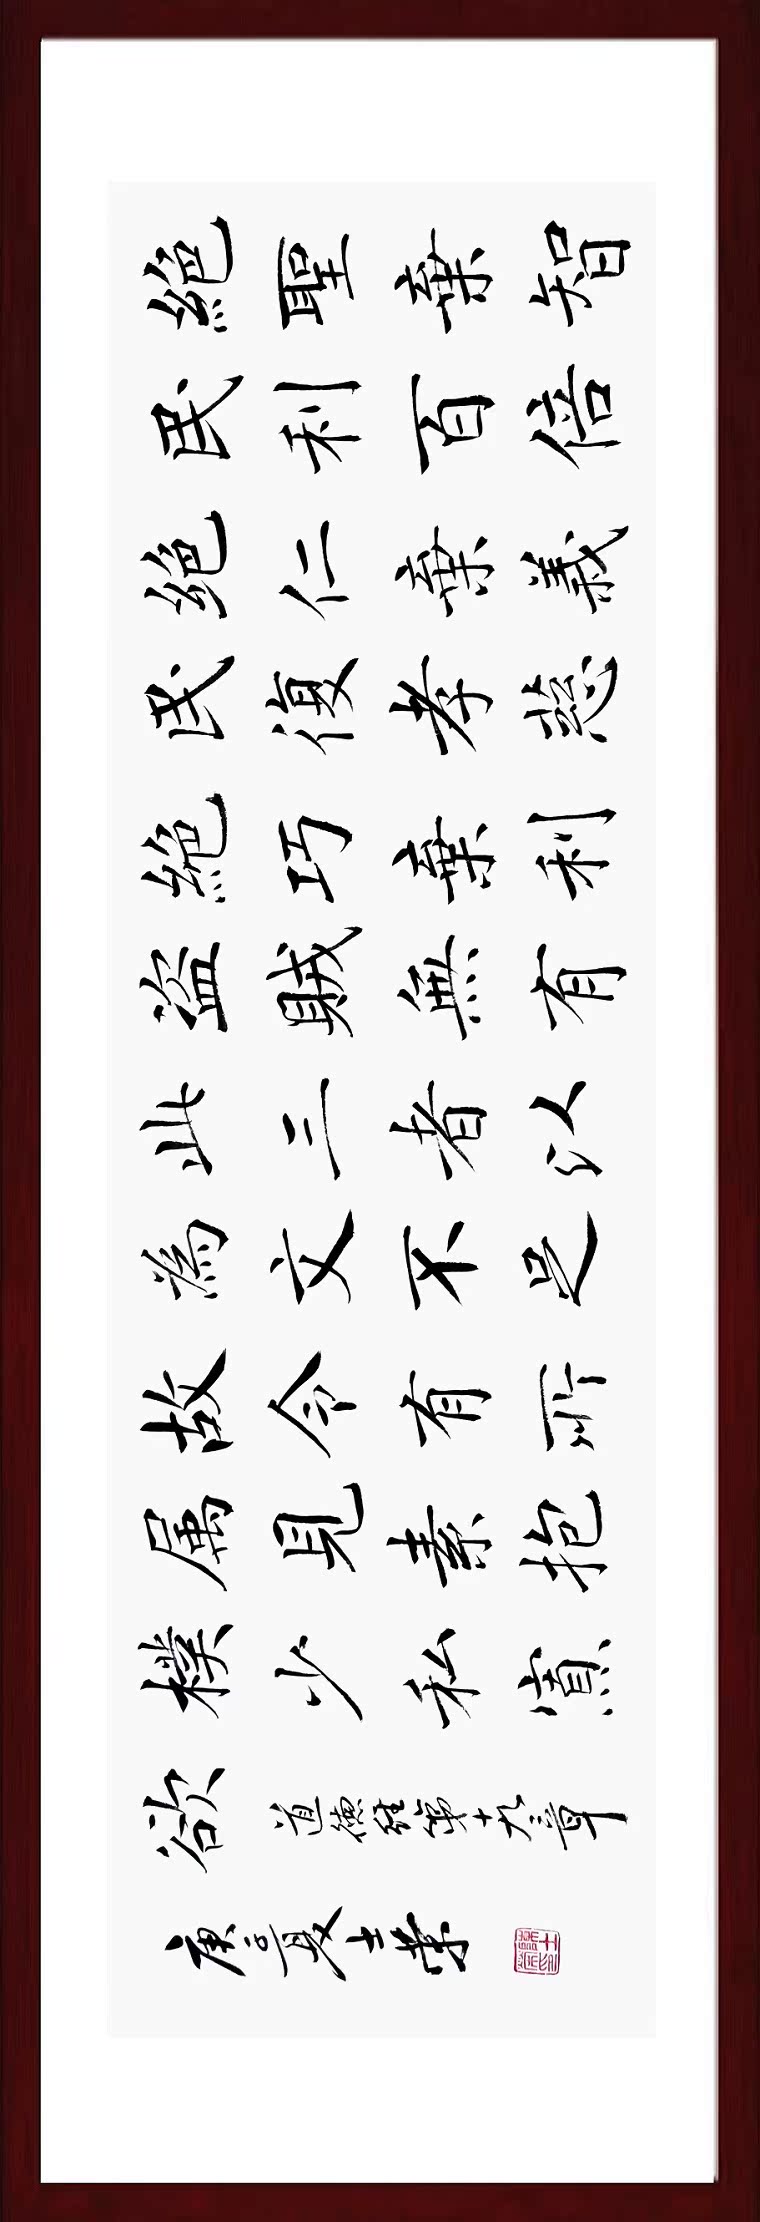 絕聖棄智
民利百倍
絕仁棄義
民復孝慈
絕巧棄利
盜賊無有
此三者以
為文不足
故令有所
属見素抱
樸少私寡
欲
道德經第十九章
庚子夏士